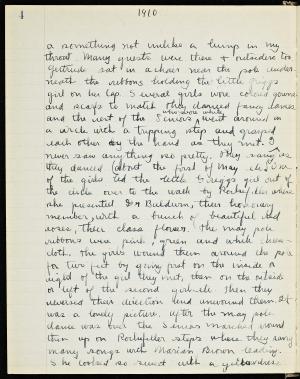 4
1910
a something not unlike a lump in my
throat. Many guests were there & outsiders too.
Gertrude sat in a chair near the pole under-
neath the ribbons holding the little Griggs
girl on her lap. Several girls wore colored gowns
and scarfs to match. They danced fancy dances
who wore white
and the rest of the Seniors went around in
a circle with a tripping step and grasped
each other by the hand as they met. I
never saw anything so pretty. They sang as
they danced about the first of May. Eleanor
of the girls led the little Griggs girl out of
the circle over to the walk by Rockefeller where
she presented Dr Baldwin, their honorary
member, with a bunch of beautiful red
roses, their class flower. The may pole
ribbons were pink, green and white cheese
cloth. The girls wound them around the pole
for two just by going first on the inside or
right of the girl they met, then on the outside
or left of the second girl. Then they
reversed their direction and unwound them. It
was a lovely picture. After the may pole
dance was over the Seniors marched round
then up on Rockefeller steps where they sang
many songs with Marian Brown leading.
She looked so sweet with a yellow dress